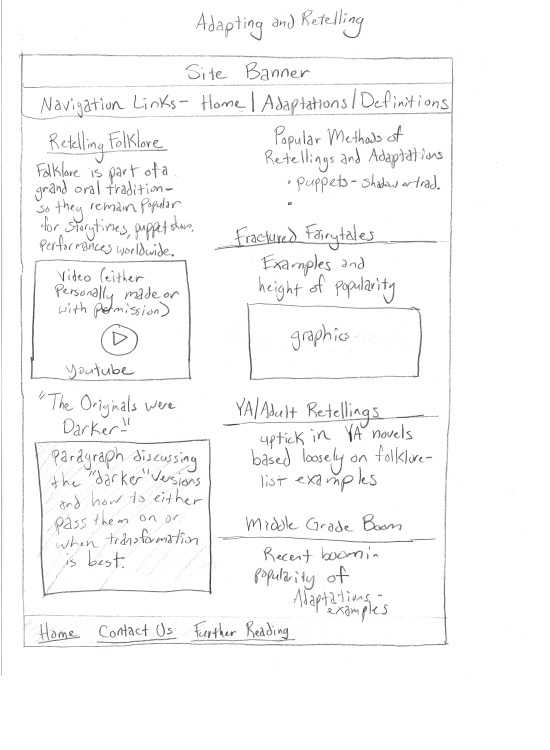 Adapting and Retelling
Site Banner
Navigation Links- Home | Adaptations | Definitions
Retelling Folklore
Folklore is part of a
grand oral tradition-
so they remain popular
for storytimes, puppet shows,
performances worldwide.
Video (either
Personally made or
with permission)
Youtube
"The Originals were
Darker-"
Paragraph discussing
the "darker" versions
and how to either
pass them on or
when transformation
is best.
Popular Methods of
Retellings and Adaptations
• puppets- shadow or trad.
•
Fractured Fairytales
Examples and
height of popularity
graphics
YA/Adult Retellings
uptick in YA novels
based loosely on folklore-
list examples
Middle Grade Boom
Recent boom in
popularity of
Adaptations-
examples
Home Contact Us Further Reading